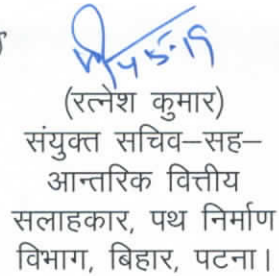 (रत्नेश कुमार)
संयुक्त सचिव–सह–
आन्तरिक वित्तीय
सलाहकार, पथ निर्माण
विभाग, बिहार, पटना।